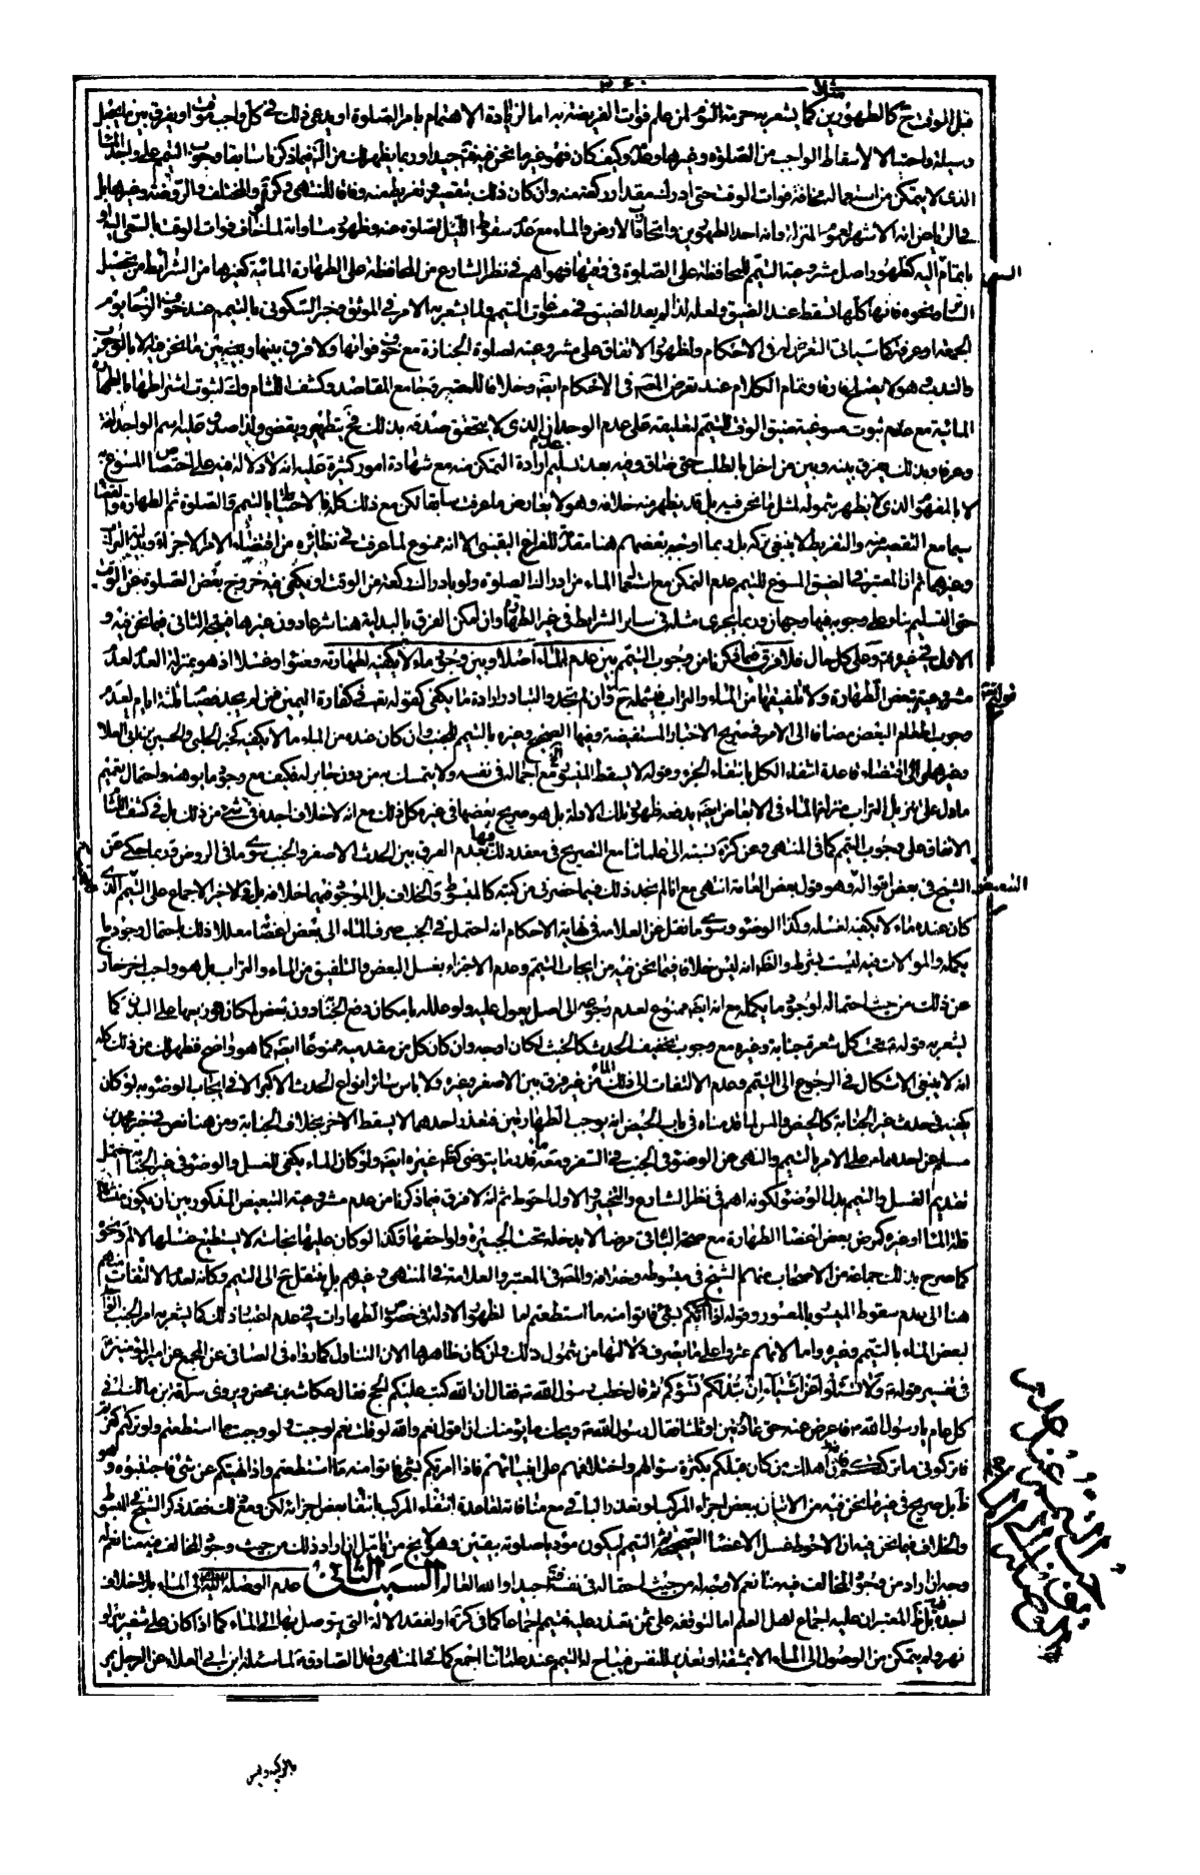 ٣٤٠
مثلا
قبل الوقت ح كالطهورين كما يشعر به حرمة النوم ان علم فوات الفريضة به اما لزيادة الاهتمام بامر الصلوة او يدعى ذلك في كل واجب موقت او يفرق بين ما يجعل
وسيلة واحتيالا لاسقاط الواجب من الصلوة وغيرها وعدمه وكيف كان فهو غير ما نحن فيه جيدا وربما يظهر لك من التأمل فيما ذكرنا سابقا وجوب التيمم على واجد الماء
الذى لا يتمكن من استعماله مخافة فوات الوقت حتى ادراك مقدار ركعة منه وان كان ذلك بتقصير وتفريط منه وفاقا للمنتهى وكرة والمختلف والروضة وغيرها بل
في الرياض انه الاشهر لعموم المنزلة وانه احد الطهورين واتحاد رب الارض والماء مع عدم سقوط الصلوة عنه وظهور مساواته لمن خاف فوات الوقت بالسعى اليه او
بل تمام اليه كظهور اصل مشروعية التيمم للمحافظة على الصلوة في وقتها فهو اهم في نظر الشارع من المحافظة على الطهارة المائية كغيرها من الشرائط من تحصيل
الساتر ونحوه فانها كلها تسقط عند الضيق ولعله لذا لم يعد الضيق في مسوغات التيمم ولما يشعر به الامر في الموثق وخبر السكونى بالتيمم عند خوف الزحام يوم
الجمعة او عرفة كما سياتى التعرض له فى الاحكام ولظهور الاتفاق على مشروعيته لصلوة الجنازة مع خوف فواتها ولا فرق بينها وبين ما نحن فيه الا بالوجوب
والندب وهو لا يصلح فارقا وتمام الكلام عند تعرض المصنف فى الاحكام ايضا وخلافا للمعتبر وجامع المقاصد وكشف اللثام ولثبوت اشتراطها بالطهارة
المائية مع عدم ثبوت مسوغية ضيق الوقت للتيمم لتعليقه على عدم الوجدان الذى لا يتحقق صدقه بذلك فح يتطهر ويقضى ولذا صدق عليه اسم الواجد لغة
وعرفا وبذلك يفرق بينه وبين من اخل بالطلب حتى ضاق وفيه بعد تسليم عدم ارادة التمكن منه مع شهادة امور كثيرة عليه انه لا دلالة فيه على اختصاص المسوغ به
الا بالمفهوم الذى لا يظهر شموله لمثل ما نحن فيه بل قد يظهر منه خلافه وهو لا يعارض ما عرفت سابقا لكن مع ذلك كله فالاحتياط بالتيمم والصلوة ثم الطهارة والقضاء
سيما مع التقصير منه والتفريط لا ينبغى تركه بل ربما اوجبه بعضهم هنا مقدمة للفراغ اليقينى الا انه ممنوع لما عرفت في نظائره من اقتضاء الامر الاجزاء
وغيرهما ثم ان المعتبر في الضيق المسوغ للتيمم عدم التمكن مع استعمال الماء من ادراك الصلوة ولو بادراك ركعة من الوقت او يكفى فيه خروج بعض الصلوة عن الوقت
حتى التسليم بناء على وجوبه فيها وجهان وربما يجرى مثله في سائر الشرائط في غير الطهارة وان امكن الفرق بالبدلية هنا شرعا دون غيرها فيتجه الثانى فيما نحن فيه و
الاول في غيره وعلى كل حال فلا فرق فيما ذكرنا من وجوب التيمم بين عدم الماء اصلا وبين وجود ماء لا يكفيه لطهارته وضوء او غسلا اذ هو بمنزلة العدم لعدم
مشروعية بعض الطهارة ولا تلفيقها من الماء والتراب فيشمله ح فان لم تجدوا لتبادر ارادة ما يكفى كقوله تعالى في كفارة اليمين فمن لم يجد فصيام ثلثة ايام لعدم
وجوب اطعام البعض مضافا الى الامر في صريح الاخبار المستفيضة وفيها الصحيح وغيره بالتيمم للجنب وان كان عنده من الماء ما لا يكفيه كخبر الحلبى والحسين بن ابى العلا
وغيرهما الى اقتضاء قاعدة انتفاء الكل بانتفاء الجزء وقوله لا يسقط الميسور مع اجماله في نفسه ولا يتمسك به من دون جابر له فكيف مع وجود ما يوهنه واحتمال تتميم
ما دل على تنزيل التراب منزلة الماء فى الابعاض ايضا يدفعه ظهور تلك الادلة بل هو صريح بعضها في غيره كل ذلك مع انه لا خلاف اجده في شئ من ذلك بل في كشف اللثام
الاتفاق على وجوب التيمم كما في المنتهى وعن كرة نسبته الى علمائنا مع التصريح في معقد ذلك فيها بعدم الفرق بين الحدث الاصغر والجنب سوى ما في الروض ربما حكى عن
الشيخ في بعض اقواله وهو قول بعض العامة انتهى مع انا لم نجد ذلك فيما حضرنى من كتبه كالمبسوط والخلاف بل الموجود فيهما خلافه بل في الاخير الاجماع على التيمم الذى
كان عنده ماء لا يكفيه لغسله وكذا الوضوء وسوى ما نقل عن العلامة فى نهاية الاحكام انه احتمل في الجنب صرف الماء الى بعض اعضائه معللا ذلك باحتمال وجود ما
يكمله والموالات فيه ليست بشرط والظاهر انه ليس خلافا فيما نحن فيه من ايجاب التيمم وعدم الاجزاء بغسل البعض والتلفيق من الماء والتراب بل هو واجب اخر خارج
عن ذلك من حيث احتماله لوجود ما يكمله مع انه ايضا ممنوع لعدم رجوعه الى اصل يعول عليه ولو علله بامكان رفع الجنابة دون بعض لكان هو ربعها على البدن كما
يشعر به قوله تحت كل شعرة جنابة وغيره مع وجوب تخفيف الحدث كالخبث لكان اوجه وان كان كل من مقدمتيه ممنوعا ايضا كما هو واضح فظهر لك من ذلك كله
انه لا ينبغى الاشكال في الرجوع الى التيمم وعدم الالتفات الى ذلك الماء من غير فرق بين الاصغر وغيره ولا بين سائر انواع الحدث الاكبر الا في ايجاب الوضوء به لو كان
يكفيه في حدث غير الجنابة كالحيض والمس لما قدمناه فى باب الحيض انه يوجب الطهارتين فتعذر احدهما لا يسقط الاخر بخلاف الجنابة ومن هنا نص في خبر محمد بن
مسلم عن احدهما على الامر بالتيمم والنهى عن الوضوء فى الجنب في السفر ومعه ماء قدر ما يتوضى كظاهر غيره ايضا ولو كان الماء يكفى للغسل والوضوء في غير الجنابة احتمل
تقديم الغسل والتيمم بدل الوضوء لكونه اهم في نظر الشارع والتخيير والاول احوط ثم انه لا فرق فيما ذكرنا من عدم مشروعية التبعيض المذكور بين ان يكون منشأه
قلة الماء او غيره كمرض بعض اعضاء الطهارة مع صحة الباقى مرضا لا يدخله تحت الجبيرة ولواحقها وكذا لو كان عليها نجاسة لا يستطيع غسلها لألم ونحوه
كما صرح بذلك جماعة من الاصحاب منهم الشيخ في مبسوطه وخلافه والمصنف في المعتبر والعلامة في المنتهى وغيرهم بل ينتقل ح الى التيمم وكانه لعدم الالتفات منهم
هنا الى عدم سقوط الميسور بالمعسور وقوله اذا امرتكم بشئ فاتوا منه ما استطعتم اما لظهور الادلة فى خصوص الطهارات في عدم اعتبار ذلك كما يشعر به امر الجنب الواجد
لبعض الماء بالتيمم وغيره واما لانهم عثروا على ما يصرف دلالتها من شمول ذلك وان كان ظاهرها الان التناول كما رواه في الصافى عن المجمع عن امير المؤمنين
فى تفسير قوله تعالى ولا تسئلوا عن اشياء ان تبد لكم تسؤكم ثم قال خطب رسول الله ص فقال ان الله كتب عليكم الحج فقال عكاشة بن محصن ويروى سراقة بن مالك افى
كل عام يا رسول الله ص فاعرض عنه حتى عاد مرتين او ثلثا فقال رسول الله ص ويحك ما يؤمنك ان اقول نعم والله لو قلت نعم لوجبت ولو وجبت ما استطعتم ولو تركتم كفرتم
فاتركونى ما تركتكم فانما هلك من كان قبلكم بكثرة سؤالهم واختلافهم على انبيائهم فاذا امرتكم بشئ فاتوا منه ما استطعتم واذا نهيتكم عن شئ فاجتنبوه وهو
ظاهر بل صريح في غير ما نحن فيه من الاتيان ببعض اجزاء المركب لو تعذر الباقى مع منافاته لقاعدة انتفاء المركب بانتفاء بعض اجزائه لكن ومع ذلك فقد ذكر الشيخ في المبسوط
والخلاف فيما نحن فيه ان الاحوط غسل الاعضاء الصحيحة ثم التيمم ليكون مؤديا صلوته بيقين وهو لا يخلو من تأمل ان اراد ذلك من حيث وجود المخالف فيه منا نعم له
وجه ان اراد من وجود المخالف فيه منا نعم لا وجه له من حيث احتماله في نفسه فتأمل جيدا والله العالم السبب الثانى عدم الوصلة الى الماء بلا خلاف
اجده فيه بل ظاهر المعتبر ان عليه اجماع اهل العلم اما لتوقفه على ثمن تعذر عليه فتيمم اجماعا كما في كرة او لفقد الالة التى يتوصل بها الى الماء كما اذا كان على شفير بئر او
نهر ولم يتمكن من الوصول الى الماء الا بمشقة او تغرير للنفس فيباح له التيمم عند علمائنا اجمع كما في المنتهى وقال الصادق ع لما سئله ابن ابى العلاء عن الرجل يمر